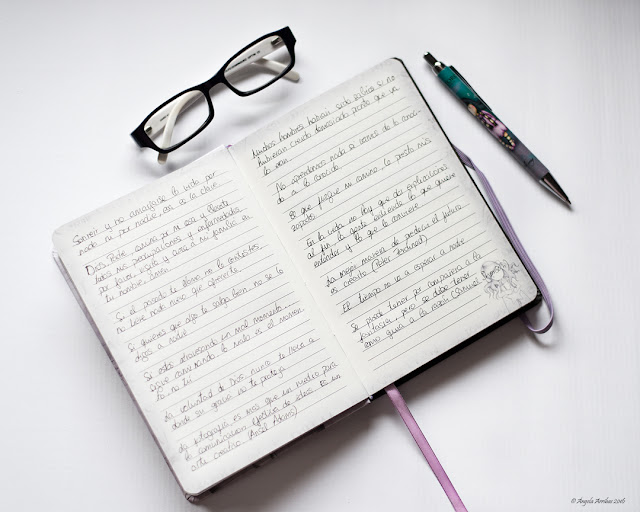 Sonreir y no amargarse la vida por
nada ni por nadie, esa es la clave
Dios Padre camina por mi casa y llévate
todas mis preocupaciones y enfermedades
por favor, vigila y cura a mi familia en
tu nombre, Amén.
Si el pasado te llama no le contestes
no tiene nada nuevo que ofrecerte.
Si quieres que algo te salga bien no se lo
digas a nadie
Si estas atravesando un mal momento...
sigue caminando. Lo malo es el momen-
to, no tú.
La voluntad de Dios nunca te lleva a
donde su gracia no te proteja
La fotografía, es mas que un medio para
la comunicación efectiva de ideas. Es un
arte creativo. (Ansel Adams)
Muchos hombres habrían sido sabios si no
hubieran creido demasiado pronto que ya
lo eran
No aprendemos nada a menos de lo amol-
do a lo conocido
El que sigue mi camino, le presto mis
zapatos
En la vida no hay que dar explicaciones
al fin la gente entiende lo que quiere
entender y lo que le conviene.
La mejor manera de predecir el futuro
es crearlo (Peter Ferdinand)
El tiempo no va a esperar a nadie
Se puede tener por compañera a la
fantasía, pero se debe tener
como guía a la razón (Samuel
© Angela Arribas 2016